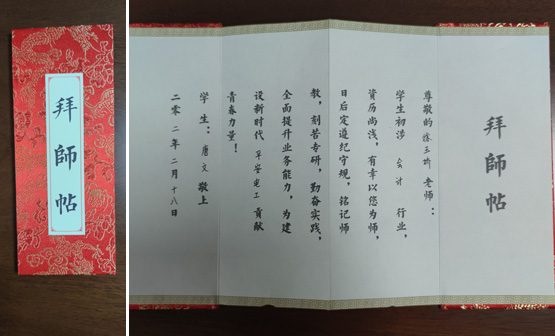 拜師帖
拜師帖
尊敬的徐玉昕老师：
学生初涉 会计 行业，
资历尚浅，有幸以您为师，
日后定遵纪守规，铭记师
教，刻苦专研，勤奋实践，
全面提升业务能力，为建
设新时代 平安定工 贡献
青春力量！
学生：唐文 敬上
二零二二年二月十八日